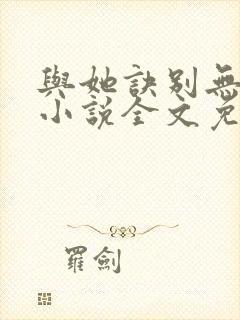 與她訣別無
小說全文免
羅劍